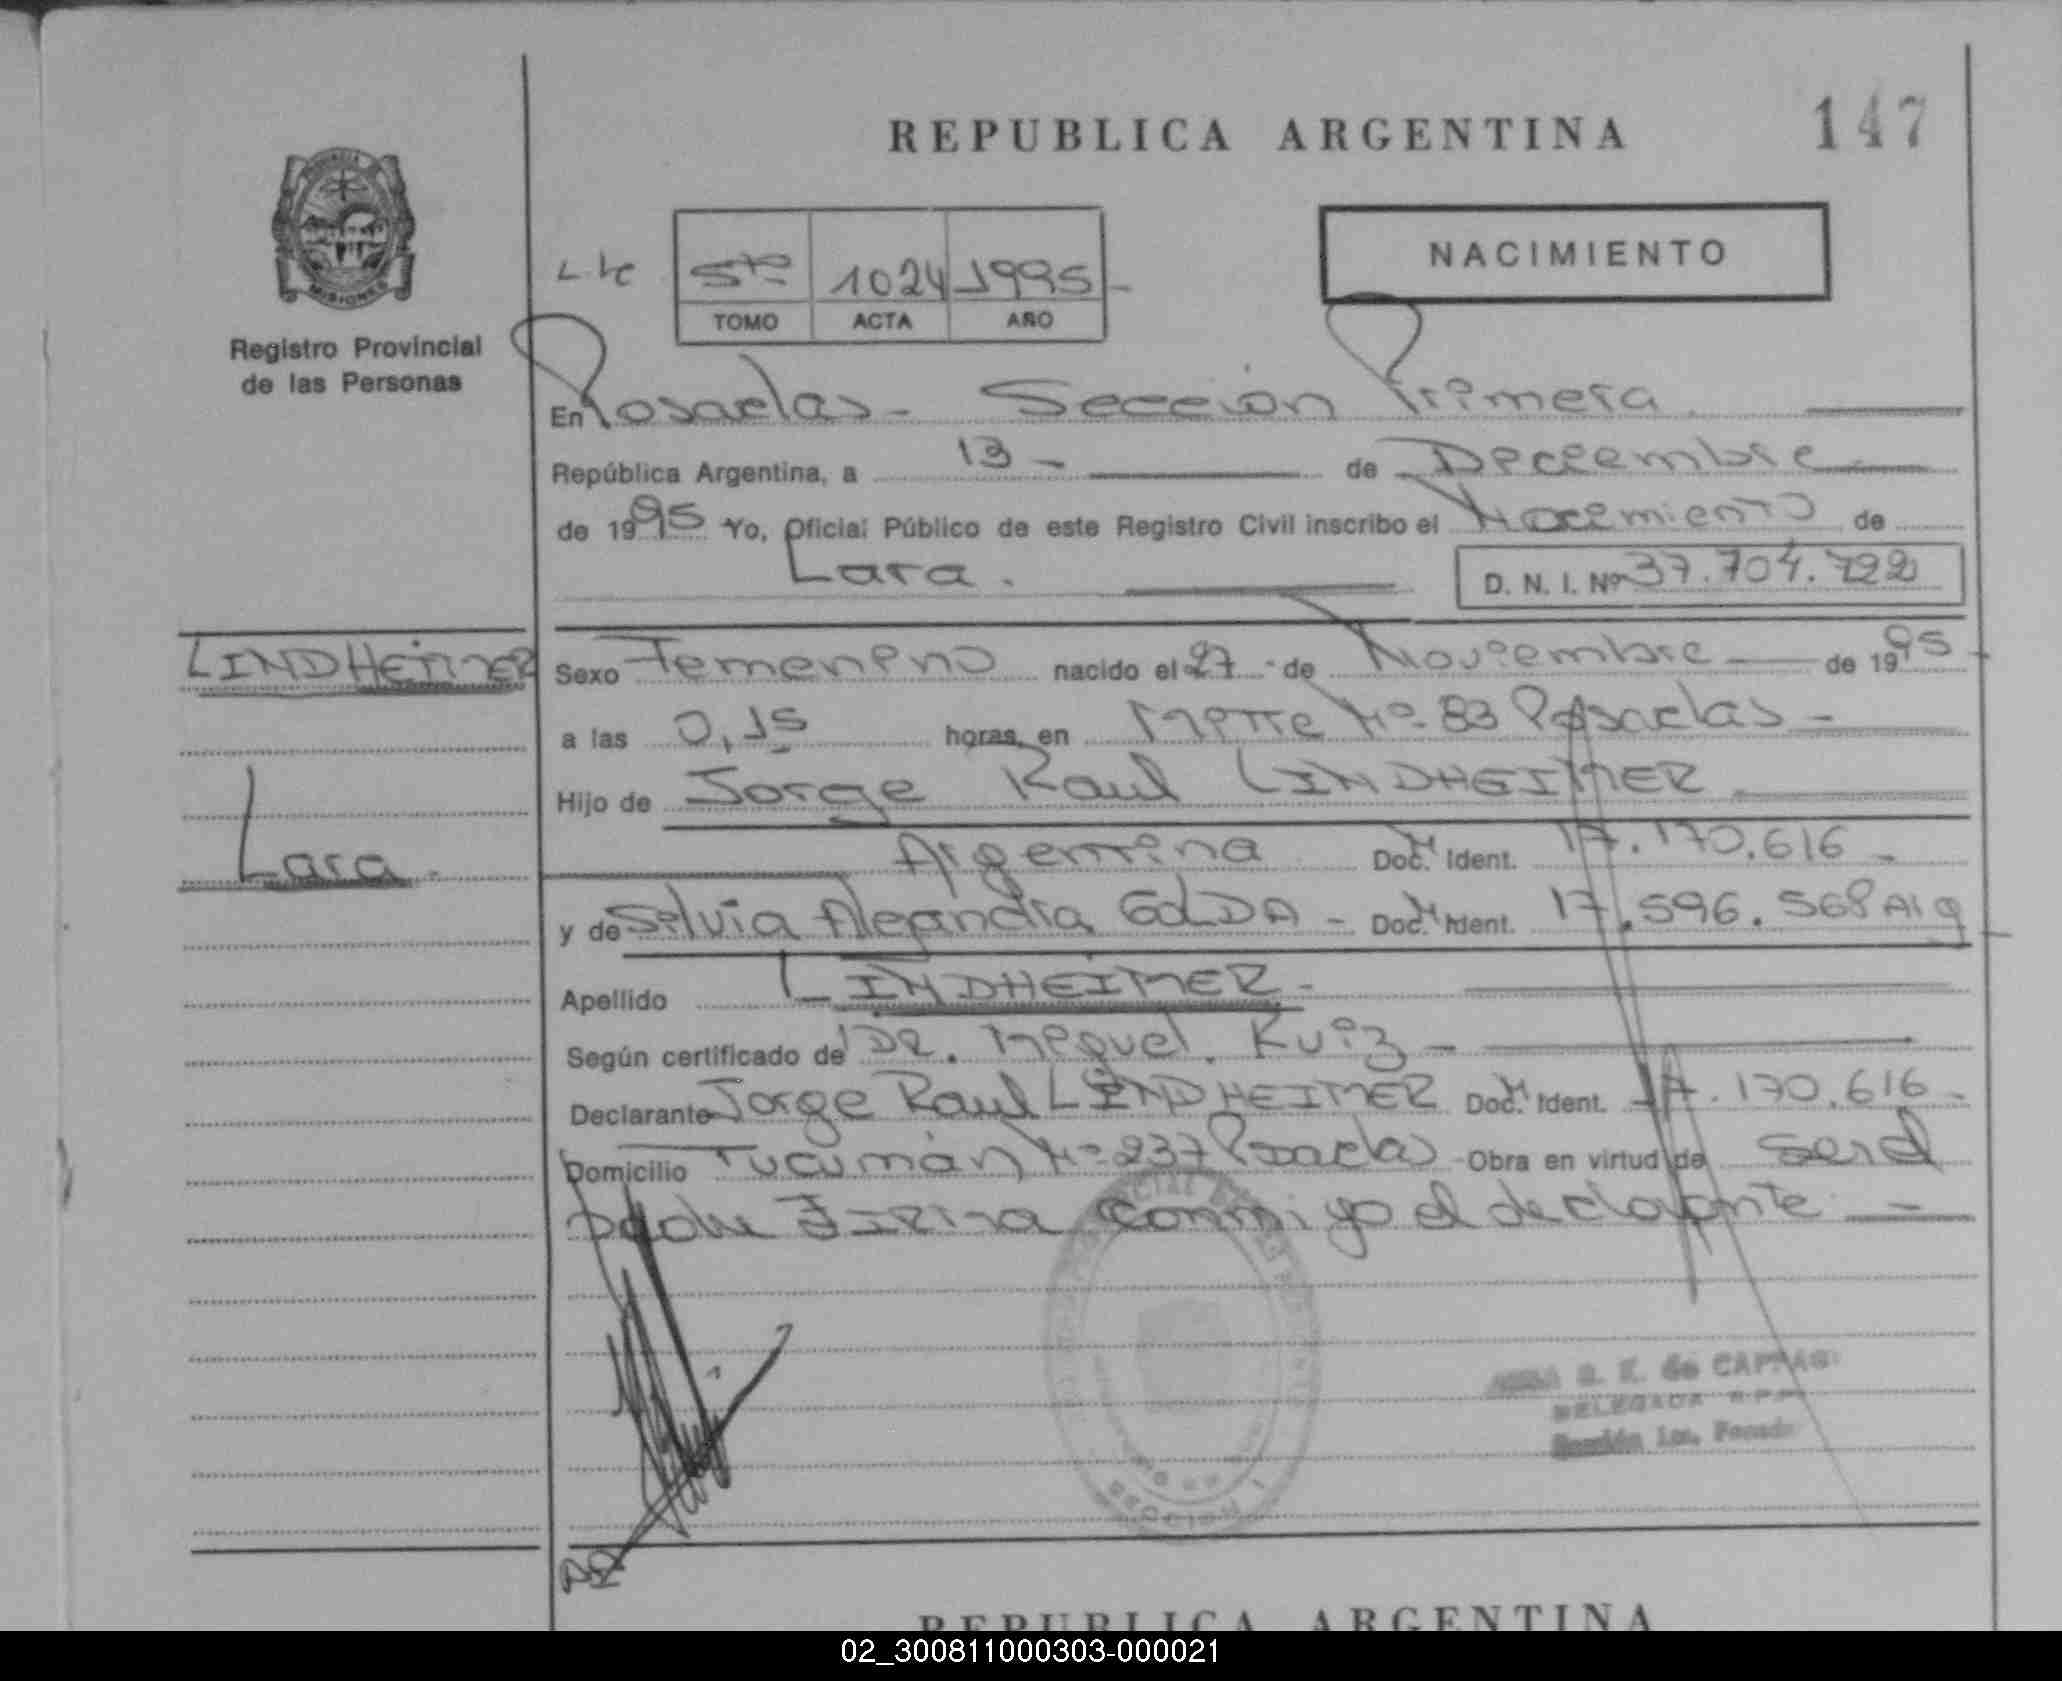 REPUBLICA ARGENTINA
147
NACIMIENTO
5to 1024 1995
TOMO ACTA AÑO
MISIONES
Registro Provincial
de las Personas
En Posadas - Sección Primera
República Argentina, a 13 - de Diciembre
de 1995 Yo, Oficial Público de este Registro Civil inscribo el Nacimiento de
Lara. D. N. I. Nº 37.704.722
LINDHEIMER
Sexo Femenino nacido el 27 - de Noviembre de 1995
a las 0,15 horas, en Mitre Nº 83 Posadas -
Hijo de Jorge Raul LINDHEIMER
Lara.
Argentina Doc. Ident. 17.170.616 -
y de Silvia Alejandra GOLDA - Doc. Ident. 17.596.568 Arg
Apellido LINDHEIMER -
Según certificado de DR. Miguel Ruiz -
Declarante Jorge Raul LINDHEIMER Doc. Ident. 17.170.616 -
Domicilio Tucumán Nº 237 Posadas Obra en virtud de ser el
padre Firma conmigo el declarante
de CAPRAS
DELEGADA R.P.P.
Sección 1ra. Posadas
SECCION 1
REPUBLICA ARGENTINA
02_300811000303-000021